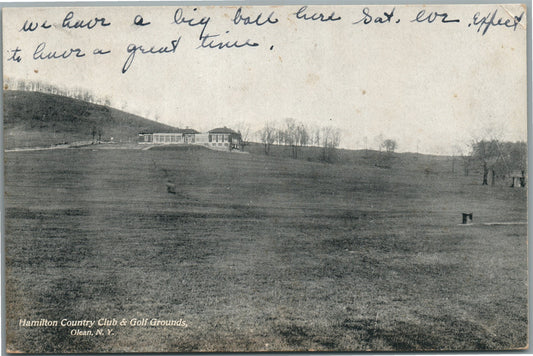 we have a big ball here Sat. eve, Expect
to have a great time.
Hamilton Country Club & Golf Grounds,
Olean, N. Y.